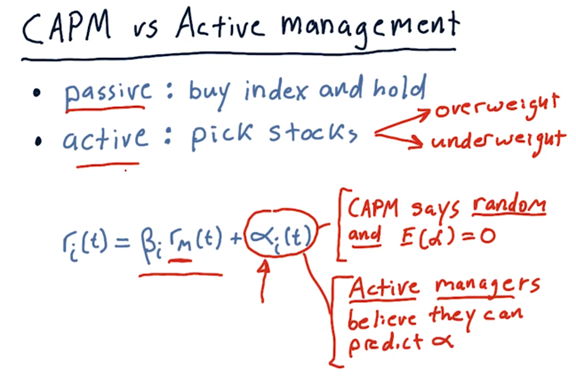 CAPM vs Active management
• passive : buy index and hold
• active : pick stocks
overweight
underweight
rᵢ(t) = βᵢ rₘ(t) + αᵢ(t)
CAPM says random
and E(α)=0
Active managers
believe they can
predict α